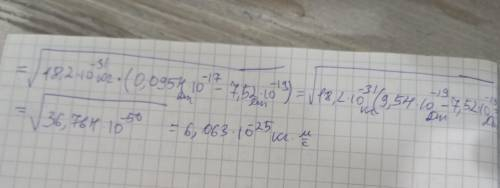 = √18,2·10⁻³¹ кг·(0,0954·10⁻¹⁷ Дж − 7,52·10⁻¹⁹ Дж) = √18,2·10⁻³¹ кг (9,54·10⁻¹⁹ Дж − 7,52·10⁻¹⁹
= √36,764·10⁻⁵⁰ = 6,063·10⁻²⁵ кг м/с